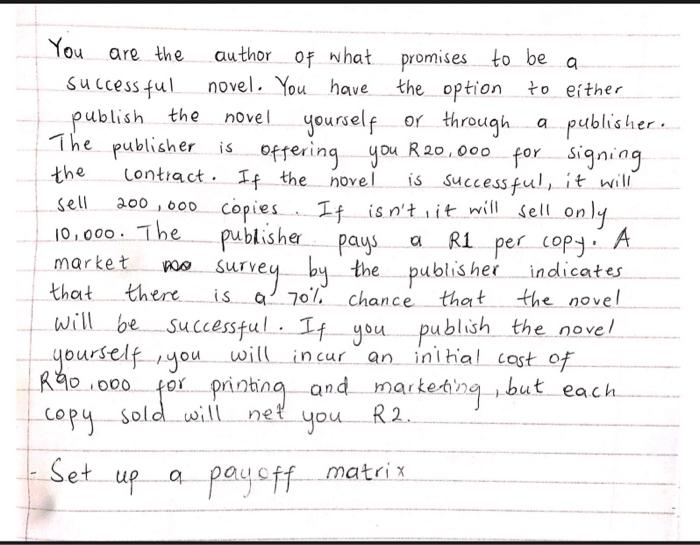 You are the author of what promises to be a
successful novel. You have the option to either
publish the novel yourself or through a publisher.
The publisher is offering you R20,000 for signing
the contract. If the novel is successful, it will
sell 200,000 copies. If isn't, it will sell only
10,000. The publisher pays a R1 per copy. A
market survey by the publisher indicates
that there is a 70% chance that the novel
will be successful. If you publish the novel
yourself, you will incur an initial cost of
R90,000 for printing and marketing, but each
copy sold will net you R2.
- Set up a payoff matrix